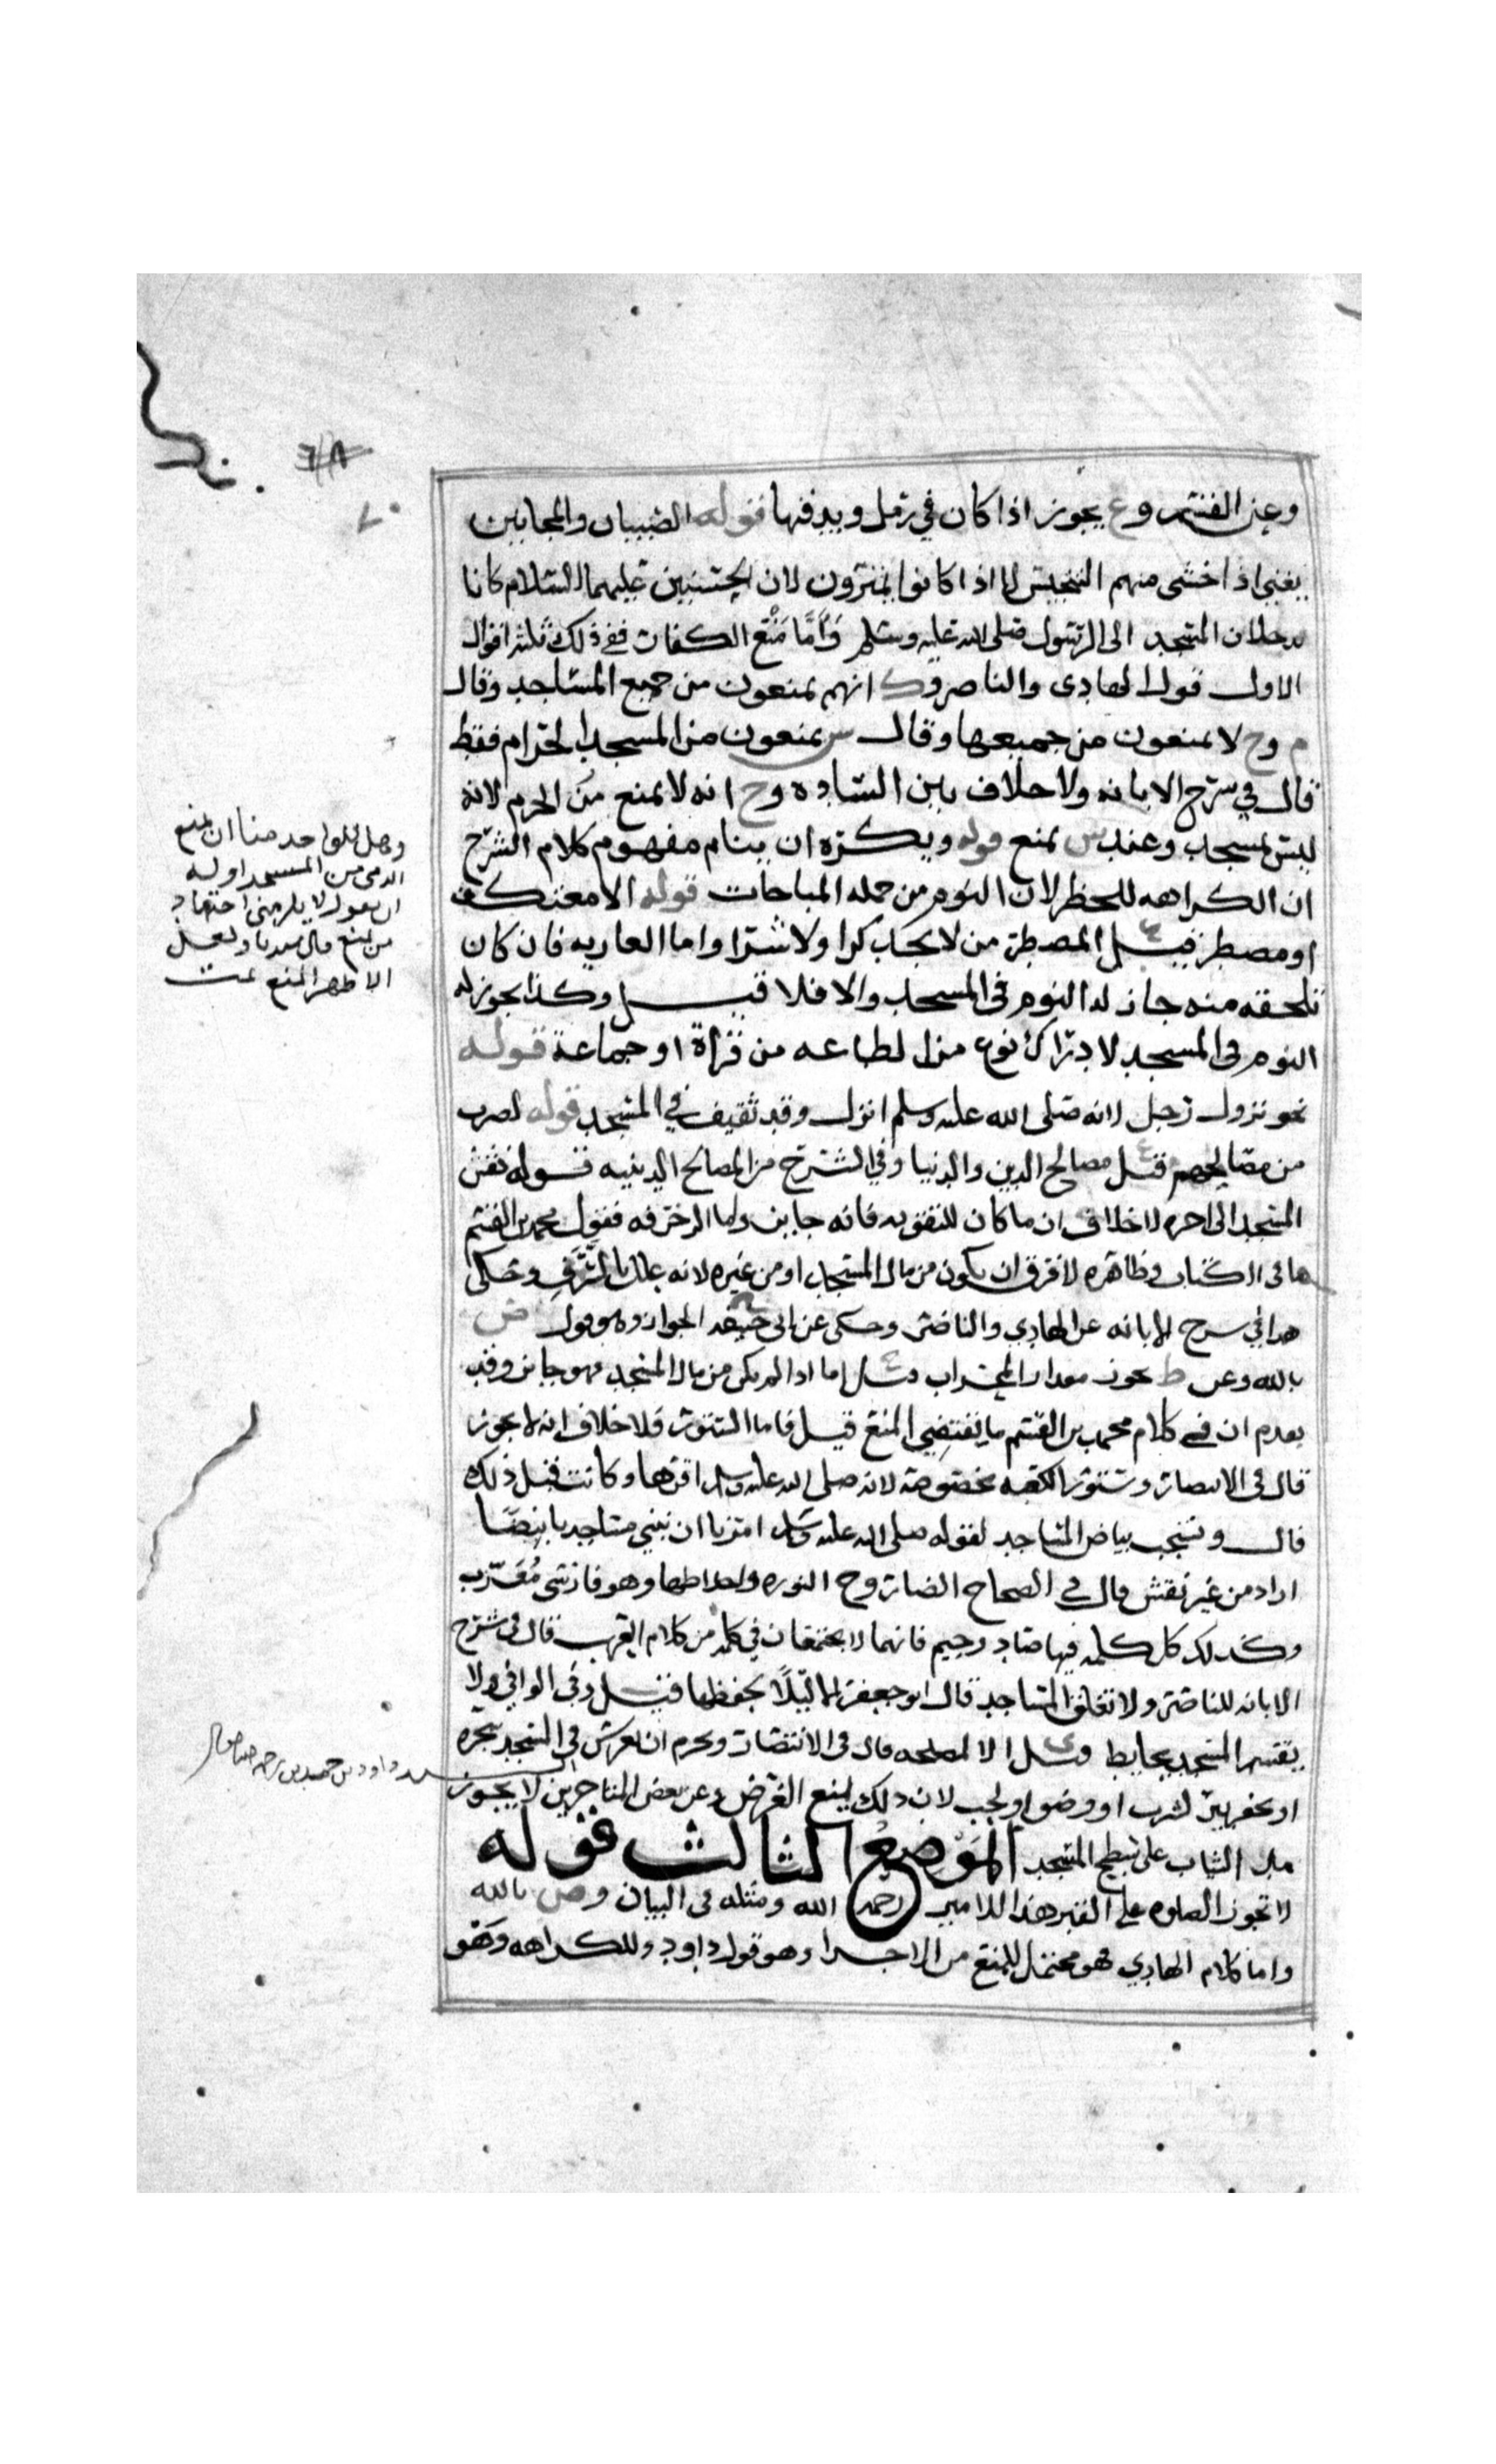 وعن القسم وع يجوز اذا كان في رمل ويدفنها قوله الصبيان والمجانين
يعني اذا خشي منهم التنجيس لا اذا كانوا يتنزهون لان الحسنين عليهما السلام كانا
يدخلان المسجد الى الرسول صلى الله عليه وسلم وأمّا منع الكفار ففي ذلك ثلثه اقوال
الاول قول الهادي والناصر وك انهم يمنعون من جميع المساجد وقال
م وح لا يمنعون من جميعها وقال س يمنعون من المسجد الحرام فقط
قال في شرح الابانه ولا خلاف بين الساده وح انه لا يمنع من الحرم لانه
ليس بمسجد وعند س يمنع قوله ويكره ان ينام مفهوم كلام الشرح
ان الكراهه للحظر لان النوم من جمله المباحات قوله الا معتكف
او مضطر قيل ع المضطر من لا يجد كرا ولا شرا واما العاريه فان كان
تلحقه منه جاز له النوم في المسجد والا فلا قيل وكذا يجوز له
النوم في المسجد لادراك نوع من الطاعه من قراة او جماعة قوله
نحو نزول رجل لانه صلى الله عليه وسلم انزل وفد ثقيف في المسجد قوله لضرب
من مصالحهم قيل ع مصالح الدين والدنيا وفي الشرح من المصالح الدينيه قوله نقش
المسجد الى اخره لا خلاف ان ما كان للتقويه فانه جايز واما الزخرفه فقول محمد بن القسم
ها في الكتاب وظاهره لا فرق ان يكون من مال المسجد او من غيره لانه علل بالترف وحكى
هذا في شرح الابانه عن الهادي والناصر وحكى عن ابي حنيفه الجواز وهو قول ض
بالله وعن ط يجوز مقدار المحراب قيل ع اما اذا لم يكن من مال المسجد فهو جايز وقد
تقدم ان في كلام محمد بن القسم ما يقتضي المنع قيل فاما الستور فلا خلاف انه لا يجوز
قال في الانتصار وستور الكعبه مخصوصة لانه صلى الله عليه وسلم اقرها وكانت قبل ذلك
قال ويستحب بياض المساجد لقوله صلى الله عليه وسلم امرنا ان نبني مساجدنا بيضًا
اراد من غير نقش قال في الصحاح الصاروج النوره واخلاطها وهو فارسي مُعَرّب
وكذلك كل كلمه فيها صاد وجيم فانهما لا يجتمعان في كلمه من كلام العرب قال في شرح
الابانه للناصر ولا تغلق المساجد قال ابو جعفر الا ليلًا لحفظها قيل وفي الوافي ولا
يقسم المسجد بحايط قيل ع الا لمصلحه قال في الانتصار ويحرم ان يغرس في المسجد شجره
او يحفر بير لشرب او وضو او لجب لان ذلك يمنع الغرض وعن بعض المتاخرين لا يجوز
مد الثياب على سطح المسجد الموضع الثالث قوله
لا تجوز الصلوه على القبر هذا للامير رحمه الله ومثله في البيان وض بالله
واما كلام الهادي فهو محتمل للمنع من الاجزا وهو قول داود وللكراهه وهو
وهل للواحد منا ان يمنع
الذمي من المسجد او له
ان يقول لا يلزمني اجتهاد
من يمنع قال سيدنا ولعل
الاظهر المنع تمت
داود بن حميد بن